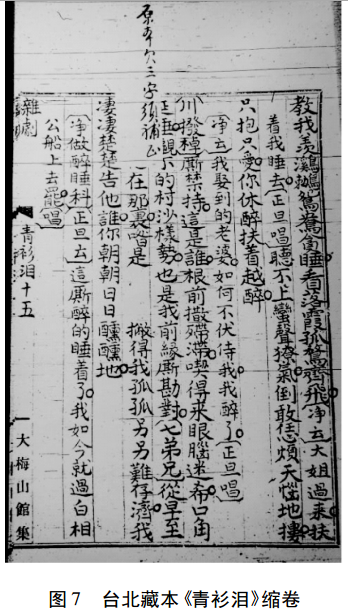 原本欠三字須補正
教我羡鸂鶒鴛鴦貪睡看落霞孤鶩齊飛净云大姐過來扶
着我睡去正旦唱聽不上蠻聲獠氣倒敢恁煩天惱地摟
只抱只愛你休醉扶着越醉
净云我娶到的老婆如何不伏侍我我醉了正旦唱
川撥棹厮禁持這是誰根前撒殢滯喫得來眼腦迷希口角
涎垂覷不的村沙樣勢也是我前緣厮勘對七弟兄從早至
在那裏皆是 搬得我孤孤另另難存濟我
凄凄楚楚告他誰你朝朝日日醺醺地
净做醉睡科正旦云這厮醉的睡着了我如今就過白相
公船上去罷唱
雜劇 青衫泪十五 大梅山館集
图7 台北藏本《青衫泪》缩卷